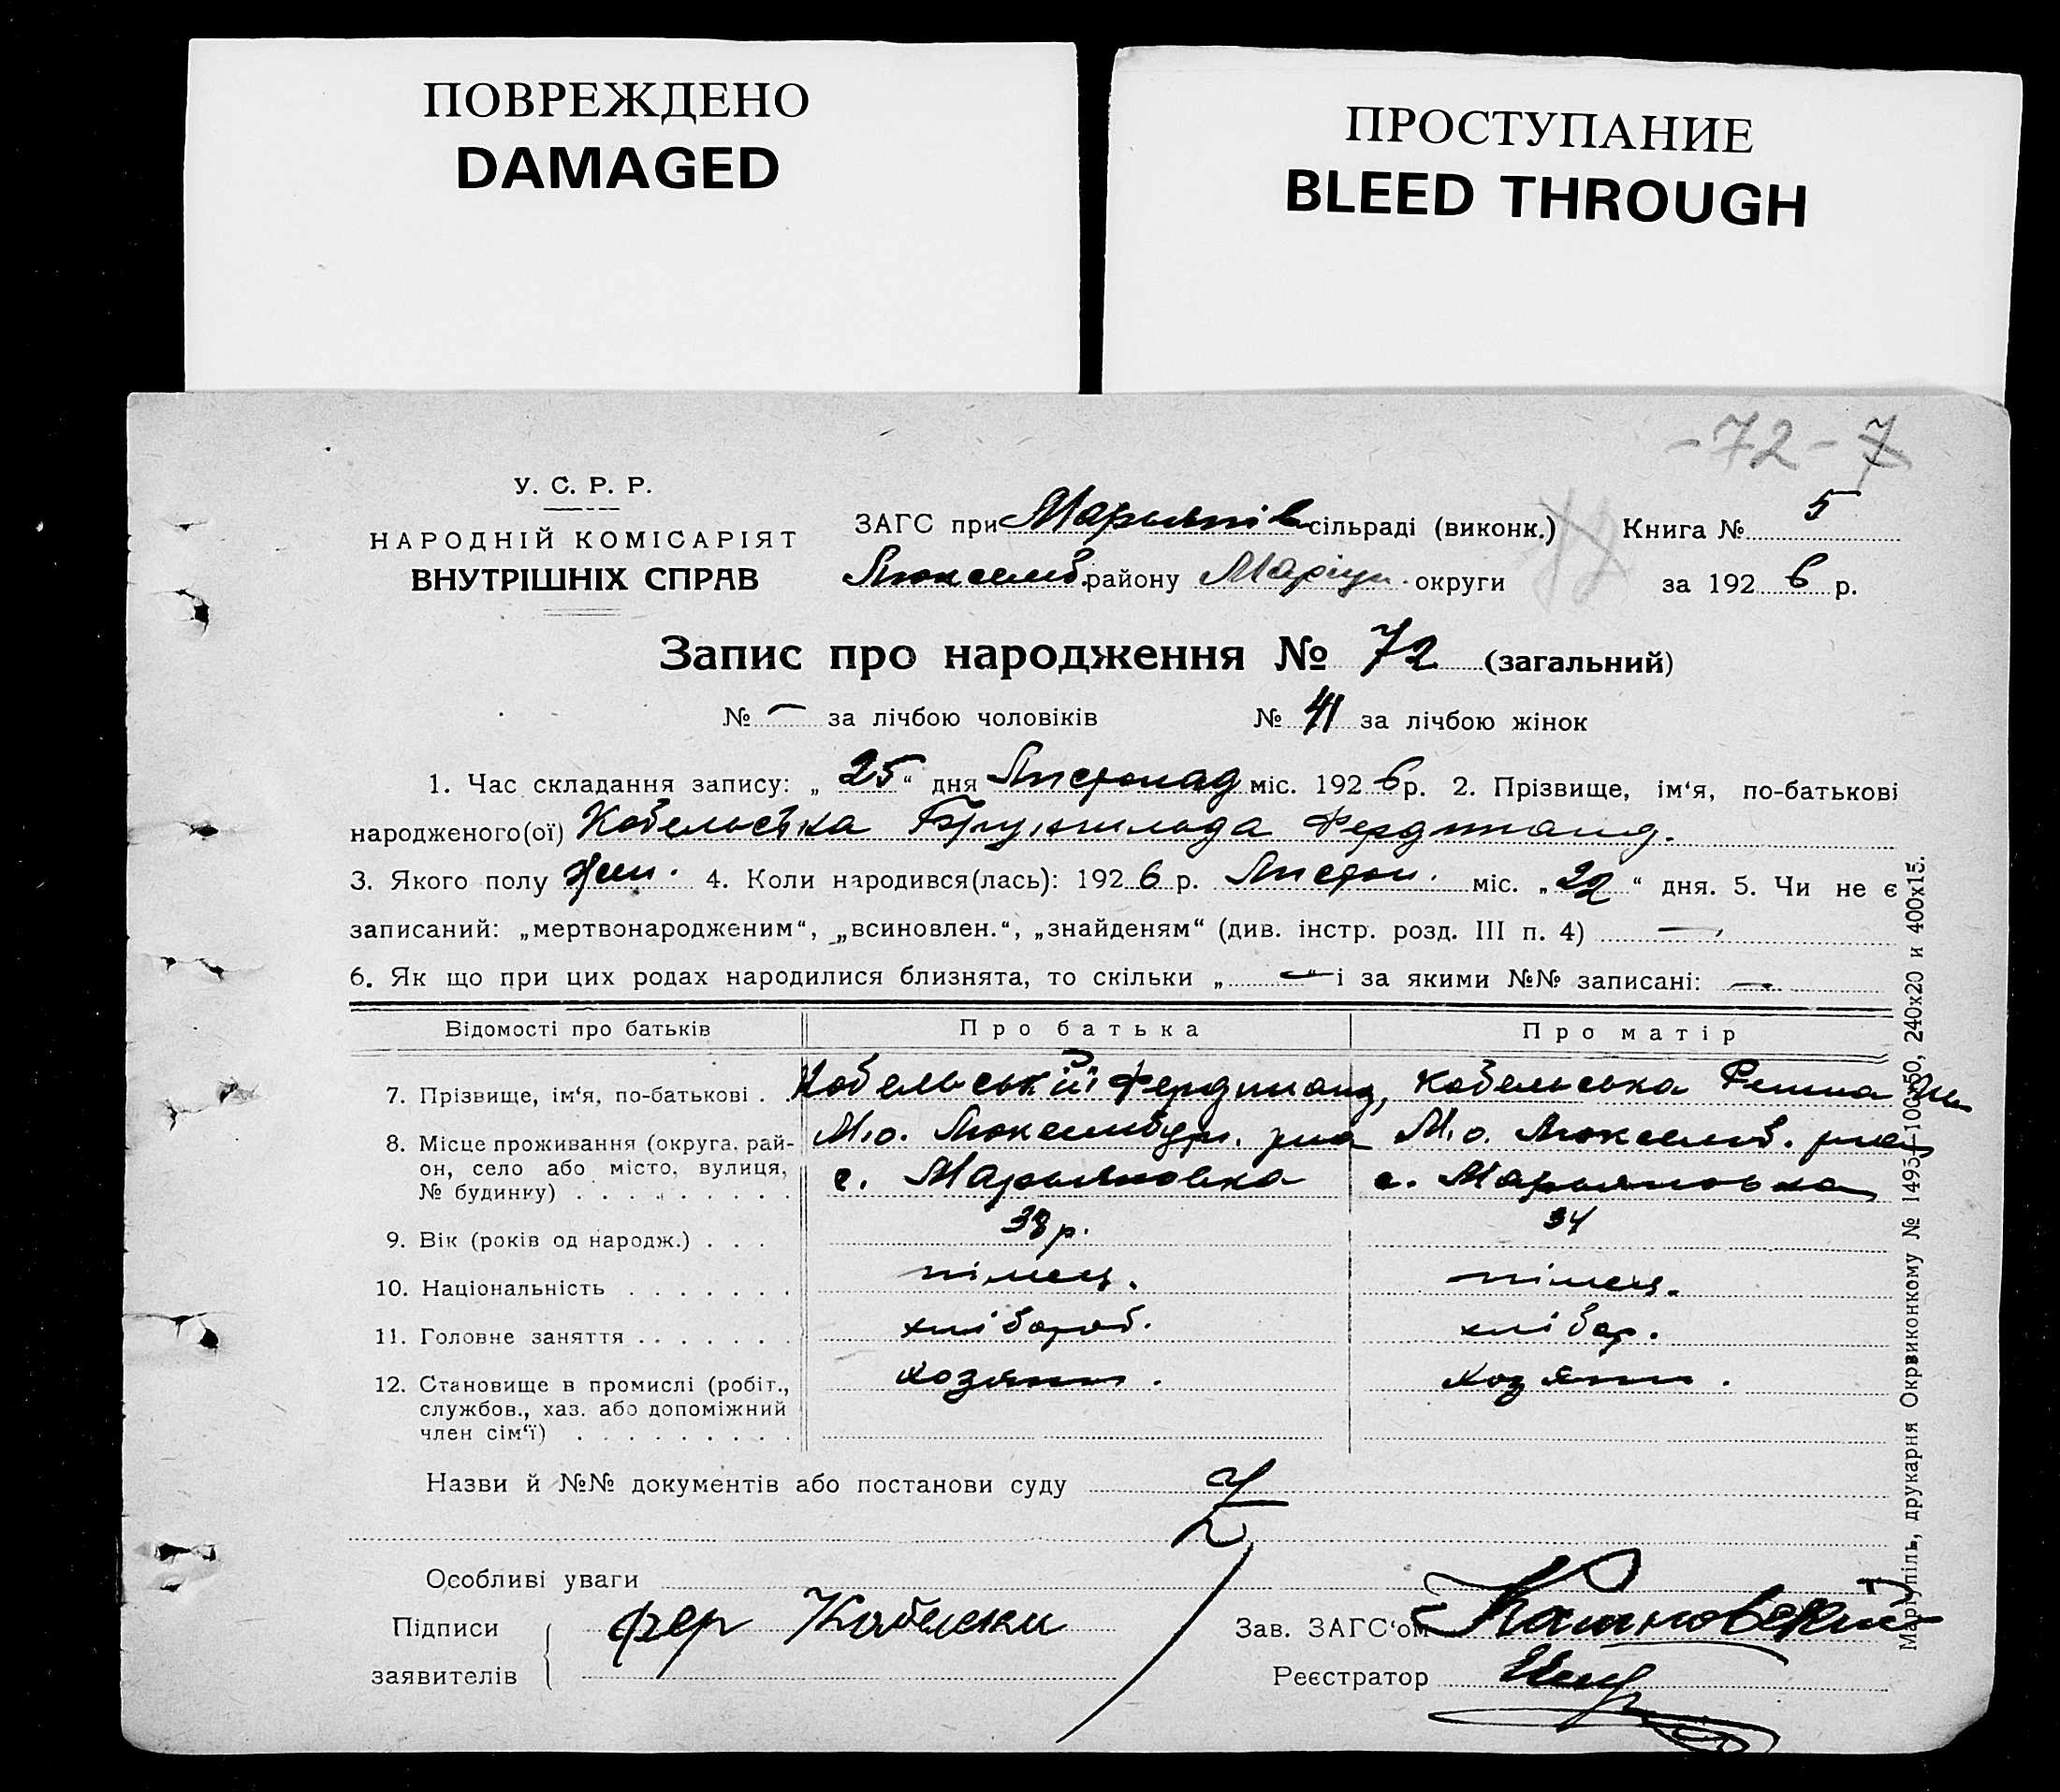 ПОВРЕЖДЕНО
DAMAGED
ПРОСТУПАНИЕ
BLEED THROUGH
-72-7
У. С. Р. Р.
НАРОДНІЙ КОМІСАРІЯТ
ВНУТРІШНІХ СПРАВ
ЗАГС при Марьянів сільраді (виконк.) Книга № 5
Люксемб. району Маріуп. округи за 1926 р.
Запис про народження № 72 (загальний)
№ — за лічбою чоловіків № 41 за лічбою жінок
1. Час складання запису: „25“ дня Листопад міс. 1926 р. 2. Прізвище, ім‘я, по-батькові
народженого(ої) Кобельська Брунгильда Фердинанд.
3. Якого полу жен. 4. Коли народився(лась): 1926 р. Листоп. міс. „22“ дня. 5. Чи не є
записаний: „мертвонародженим“, „всиновлен.“, „знайденям“ (див. інстр. розд. III п. 4) —
6. Як що при цих родах народилися близнята, то скільки „—“ і за якими №№ записані: —
Відомості про батьків Про батька Про матір
7. Прізвище, ім‘я, по-батькові . . Кобельський Фердинанд, Кобельська
8. Місце проживання (округа, рай- М.о. Люксембург. р-на М.о. Люксемб. р-на
он, село або місто, вулиця, с. Марьяновка с. Марьяновка
№ будинку) . . . . . . . . .
9. Вік (років од народж.) . . . 38 р. 34
10. Національність . . . . . . . німец. німец.
11. Головне заняття . . . . . . . хлібороб. хлібор.
12. Становище в промислі (робіт., хозяин. хозяин.
службов., хаз. або допоміжний
член сім‘ї) . . . . . . . . .
Назви й №№ документів або постанови суду
Особливі уваги
Підписи фер Кобелски Зав. ЗАГС‘ом
заявителів Реєстратор
Маріупіль, друкарня Окрвиконкому № 1495—100×50, 240х20 и 400х15.